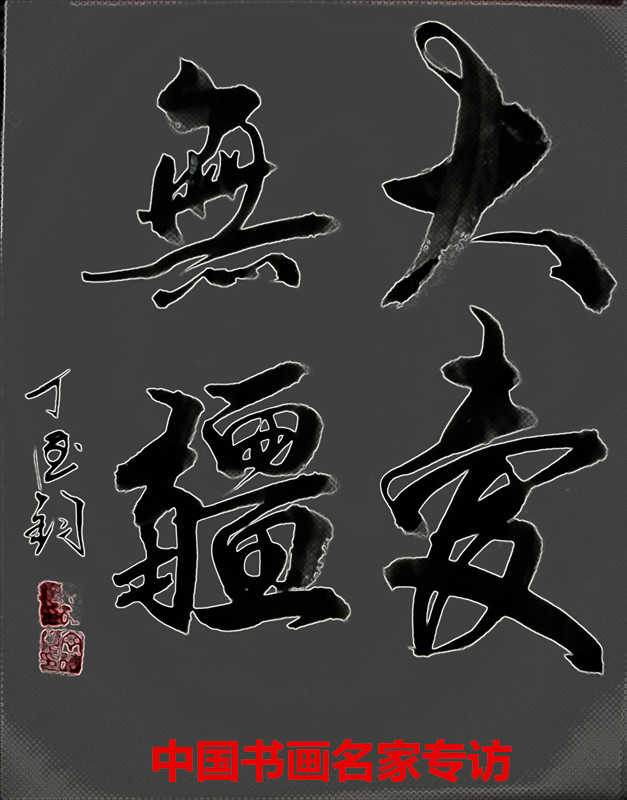 大爱
無疆
丁玉钧
中国书画名家专访